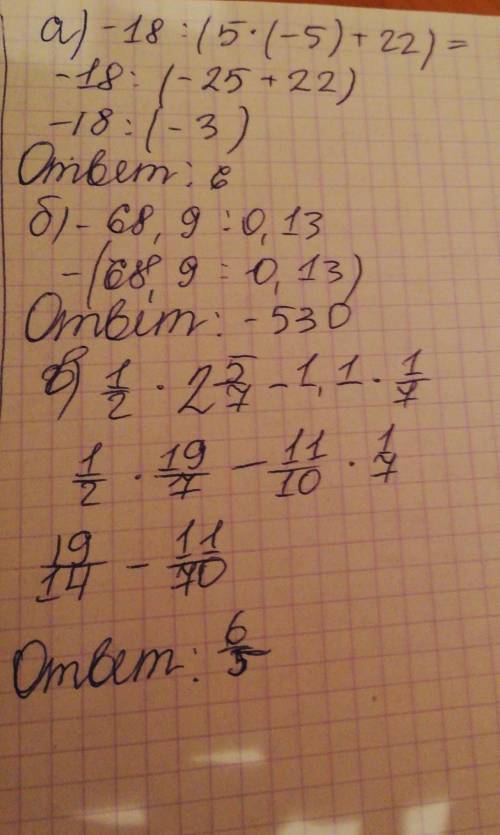 а) -18 : (5·(-5)+22)=
-18: (-25+22)
-18:(-3)
Ответ: 6
б) - 68,9 : 0,13
-(68,9 : 0,13)
Ответ: -530
в) 1/2 · 2 5/7 - 1,1 · 1/7
1/2 · 19/7 - 11/10 · 1/7
19/14 - 11/70
Ответ: 6/5